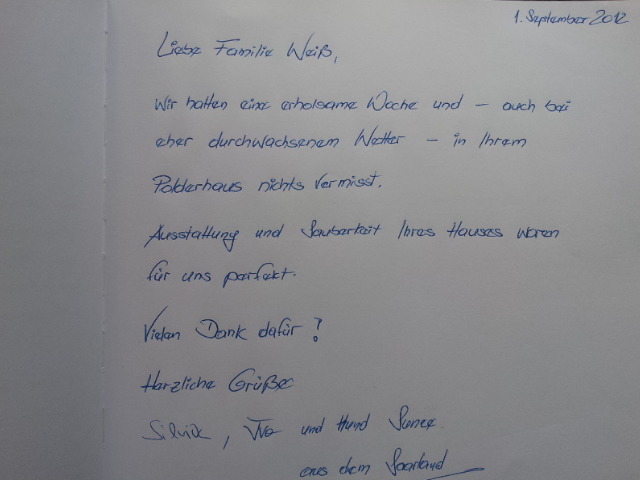 1. September 2012
Liebe Familie Weiß,
wir hatten eine erholsame Woche und – auch bei
eher durchwachsenem Wetter – in Ihrem
Polderhaus nichts vermisst.
Ausstattung und Sauberkeit Ihres Hauses waren
für uns perfekt.
Vielen Dank dafür!
Herzliche Grüße
Silvia, und Hund
aus dem Saarland